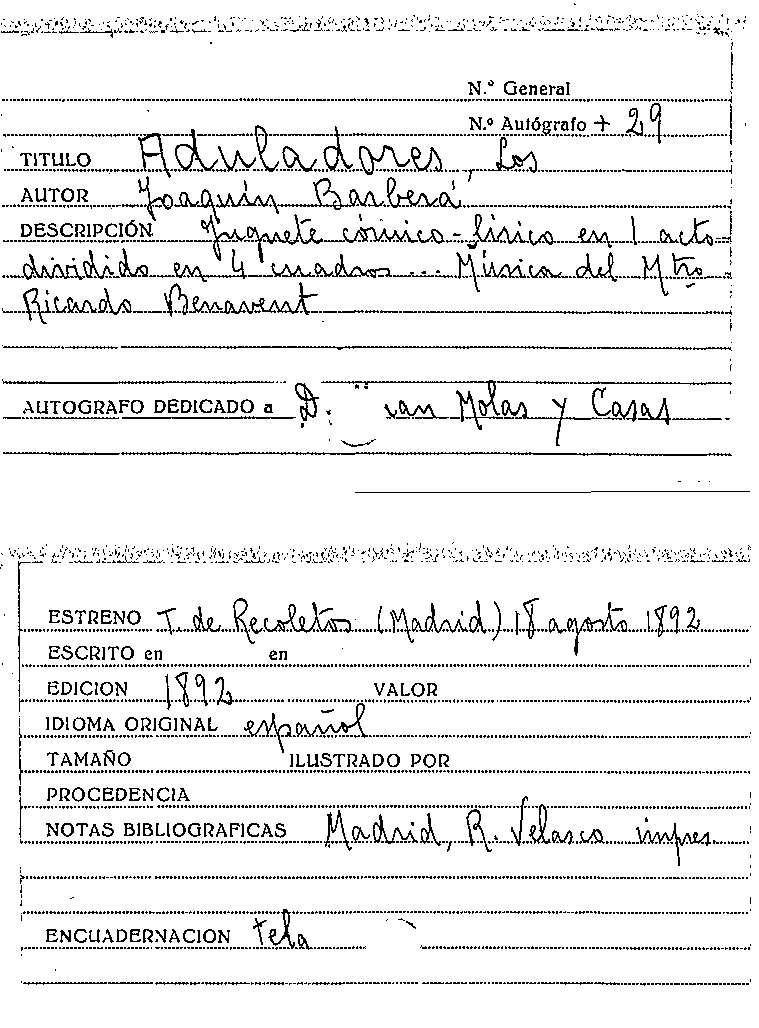 N.º General
N.º Autógrafo + 29
TITULO Aduladores, Los
AUTOR Joaquín Barberá
DESCRIPCIÓN Juguete cómico-lírico en 1 acto
dividido en 4 cuadros... Música del Mtro
Ricardo Benavent
AUTOGRAFO DEDICADO a D. Molas y Casas
ESTRENO T. de Recoletos (Madrid) 18 agosto 1892
ESCRITO en en
EDICION 1892 VALOR
IDIOMA ORIGINAL español
TAMAÑO ILUSTRADO POR
PROCEDENCIA
NOTAS BIBLIOGRAFICAS Madrid, R. Velasco impres.
ENCUADERNACION tela